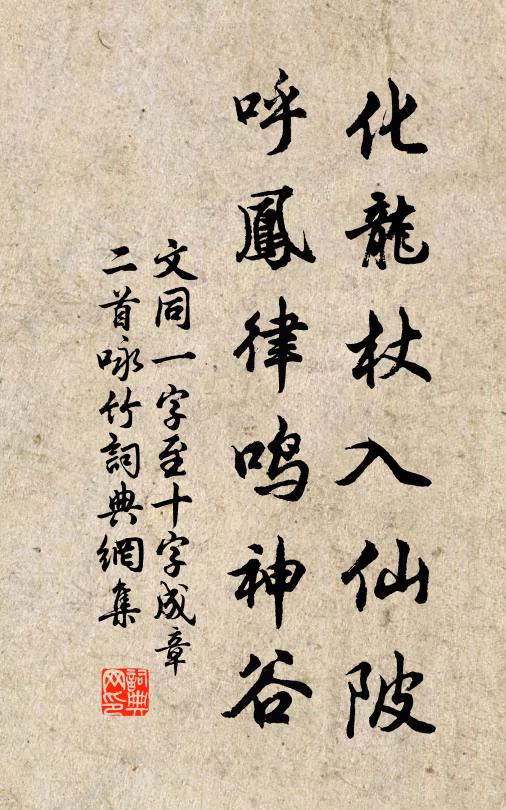 化龍杖入仙陂
呼鳳律鸣神谷
文同一字至十字成章
二首咏竹詞典網集
詞典网印